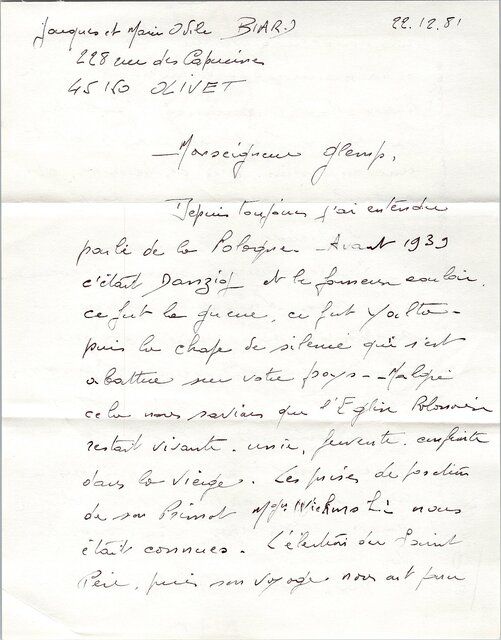 Jacques et Marie Odile BIARD 22.12.81
228 rue des Capucines
45160 OLIVET
Monseigneur Glemp,
Depuis toujours j'ai entendu
parlé de la Pologne. Avant 1939
c'était Danzig et le fameux couloir,
ce fut la guerre, ce fut Yalta -
puis la chape de silence qui s'est
abattue sur votre pays - Malgré
cela nous savions que l'Eglise Polonaise
restait vivante, unie, fervente, confiante
dans la Vierge. Les prises de position
de son Primat Mgr nous
était connues. L'élection du Saint
Père, puis son voyage nous ont